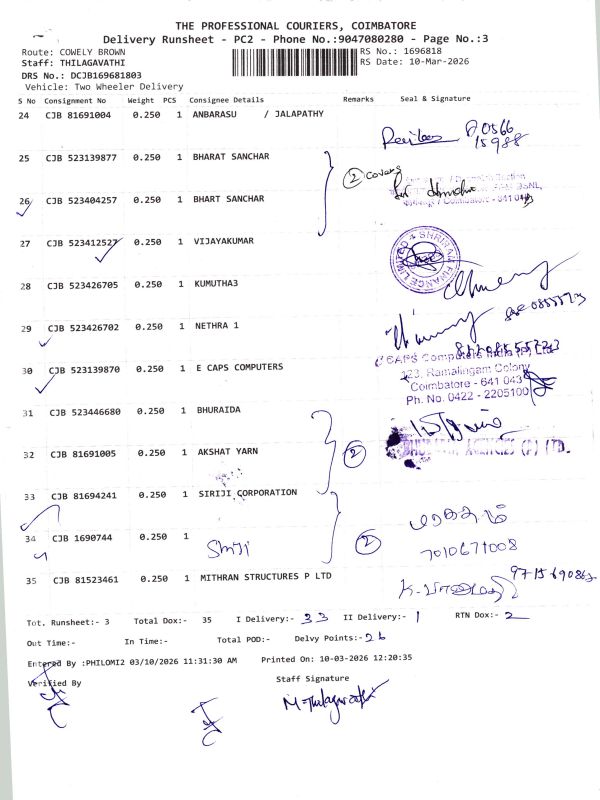 THE PROFESSIONAL COURIERS, COIMBATORE
Delivery Runsheet - PC2 - Phone No.:9047080280 - Page No.:3
Route: COWELY BROWN
RS No.: 1696818
Staff: THILAGAVATHI
RS Date: 10-Mar-2026
DRS No.: DCJB169681803
Vehicle: Two Wheeler Delivery
S No Consignment No Weight PCS Consignee Details Remarks Seal & Signature
24 CJB 81691004 0.250 1 ANBARASU / JALAPATHY
25 CJB 523139877 0.250 1 BHARAT SANCHAR
2 Covers
26 CJB 523404257 0.250 1 BHART SANCHAR
Coimbatore - 641 0
27 CJB 523412527 0.250 1 VIJAYAKUMAR
SHRIRAM FINANCE LIMITED
28 CJB 523426705 0.250 1 KUMUTHA3
29 CJB 523426702 0.250 1 NETHRA 1
30 CJB 523139870 0.250 1 E CAPS COMPUTERS
CAPS Computers India (P) Ltd
123, Ramalingam Colony
Coimbatore - 641 043
Ph. No. 0422 - 2205100
31 CJB 523446680 0.250 1 BHURAIDA
32 CJB 81691005 0.250 1 AKSHAT YARN
2
AGENCIES (P) LTD.
33 CJB 81694241 0.250 1 SIRIJI CORPORATION
34 CJB 1690744 0.250 1
Siriji
2
7010671008
35 CJB 81523461 0.250 1 MITHRAN STRUCTURES P LTD
Tot. Runsheet:- 3 Total Dox:- 35 I Delivery:- 33 II Delivery:- 1 RTN Dox:- 2
Out Time:- In Time:- Total POD:- Delvy Points:- 26
Entered By :PHILOMI2 03/10/2026 11:31:30 AM Printed On: 10-03-2026 12:20:35
Verified By Staff Signature
M. Thilagavathi